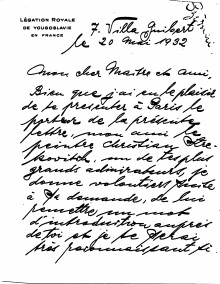 LÉGATION ROYALE
DE YOUGOSLAVIE
EN FRANCE
7, Villa Guibert
le 20 mai 1932
Mon cher Maitre et ami,
Bien que j'ai eu le plaisir
de te presenter à Paris le
porteur de la présente
lettre, mon ami le
peintre Christian
un de tes plus
grands admirateurs, je
donne volontiers suite
à sa demande, de lui
remettre, un mot
d'introduction auprès
de toi et je te serai
très reconnaissant si